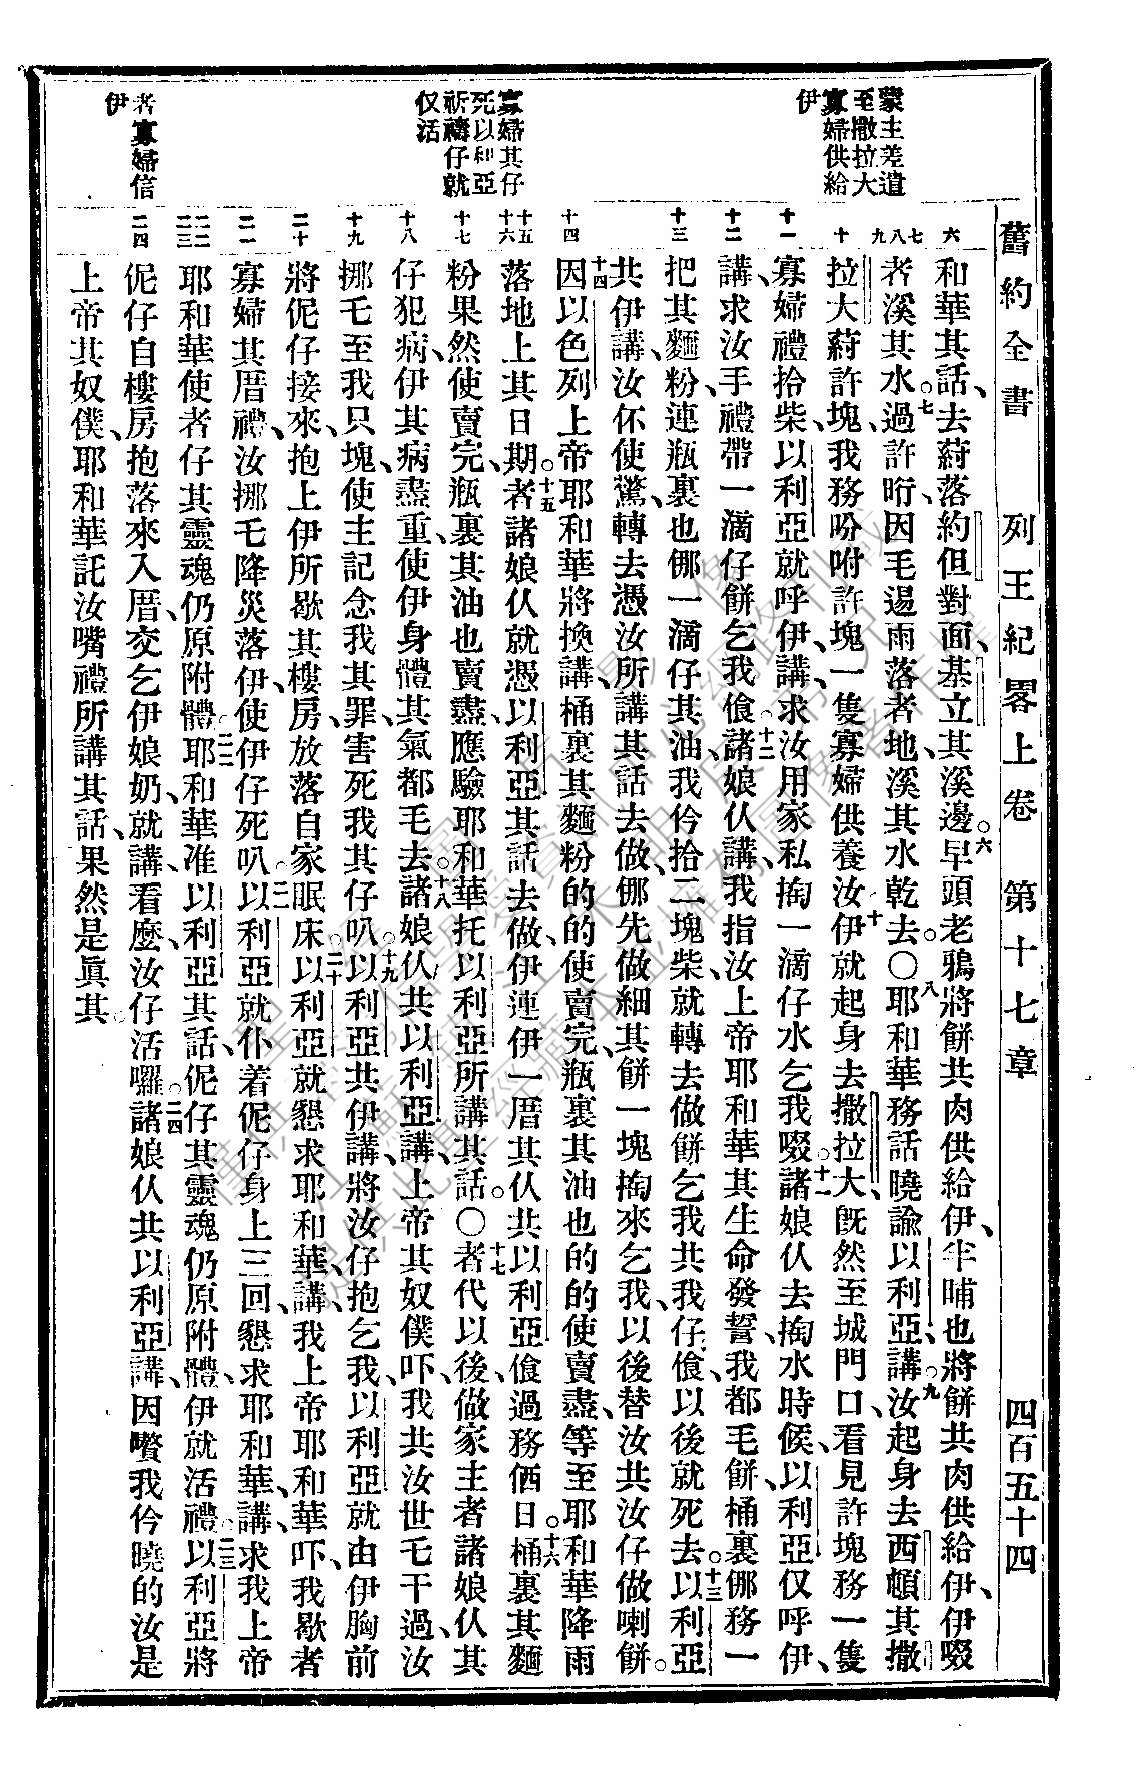 舊約全書　列王紀畧上卷　第十七章　四百五十四
蒙主差遣
至撒拉大
寡婦供給
伊
寡婦其仔
死以利亞
祈禱仔就
仅活
者寡婦信
伊
六
七八九
十
十一
十二
十三
十四
十五十六
十七
十八
十九
二十
二一
二二二三
二四
和華其話、去葤落約但對面、基立其溪邊。六早頭老鴉將餅共肉供給伊、半晡也將餅共肉供給伊、伊啜
者溪其水。七過許𣍐、因毛逿雨落者地、溪其水乾去。〇八耶和華務話曉諭以利亞、講、九汝起身去西頓其撒
拉大、葤許塊、我務吩咐許塊一隻寡婦供養汝。十伊就起身去撒拉大、旣然至城門口、看見許塊務一隻
寡婦禮拾柴、以利亞就呼伊、講、求汝用家私掏一滴仔水乞我啜。十一諸娘仈去掏水時候、以利亞仅呼伊、
講、求汝手禮帶一滴仔餅乞我飱。十二諸娘仈講、我指汝上帝耶和華其生命發誓、我都毛餅、桶裏㑚務一
把其麵粉、連瓶裏也㑚一滴仔其油、我仱拾二塊柴、就轉去做餅乞我共我仔飱、以後就死去。十三以利亞
共伊講、汝伓使驚、轉去憑汝所講其話去做、㑚先做細其餅一塊掏來乞我、以後替汝共汝仔做喇餅。
十四因以色列上帝耶和華將換講、桶裏其麵粉的的使賣完、瓶裏其油也的的使賣盡、等至耶和華降雨
落地上其日期。十五者諸娘仈就憑以利亞其話去做、伊連伊一厝其仈共以利亞飱過務㑥日。十六桶裏其麵
粉果然使賣完、瓶裏其油也賣盡、應驗耶和華托以利亞所講其話。〇十七者代以後、做家主者諸娘仈其
仔犯病、伊其病盡重、使伊身體其氣都毛去。十八諸娘仈共以利亞講、上帝其奴僕吓、我共汝世乇干過、汝
挪乇至我只塊、使主記念我其罪、害死我其仔叭。十九以利亞共伊講、將汝仔抱乞我、以利亞就由伊胸前
將伲仔接來、抱上伊所歇其樓房、放落自家眠床。二十以利亞就懇求耶和華、講、我上帝耶和華吓、我歇者
寡婦其厝禮、汝挪乇降災落伊、使伊仔死叭。二一以利亞就仆着伲仔身上三回、懇求耶和華、講、求我上帝
耶和華使者仔其靈魂仍原附體。二二耶和華准以利亞其話、伲仔其靈魂仍原附體、伊就活禮。二三以利亞將
伲仔自樓房抱落來入厝、交乞伊娘奶、就講、看麽、汝仔活囉。二四諸娘仈共以利亞講、因㗸我仱曉的汝是
上帝其奴僕、耶和華託汝嘴禮所講其話、果然是眞其。